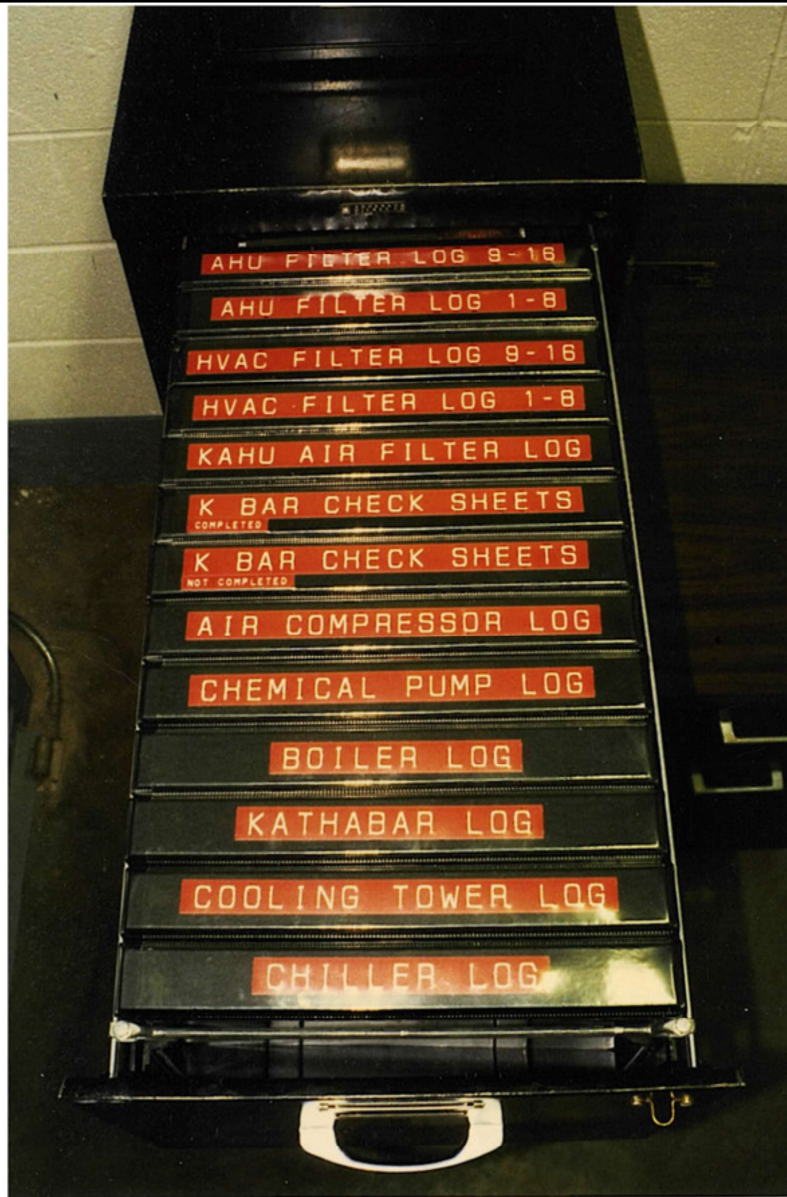 AHU FILTER LOG 9-16
AHU FILTER LOG 1-8
HVAC FILTER LOG 9-16
HVAC FILTER LOG 1-8
KAHU AIR FILTER LOG
K BAR CHECK SHEETS
COMPLETED
K BAR CHECK SHEETS
NOT COMPLETED
AIR COMPRESSOR LOG
CHEMICAL PUMP LOG
BOILER LOG
KATHABAR LOG
COOLING TOWER LOG
CHILLER LOG